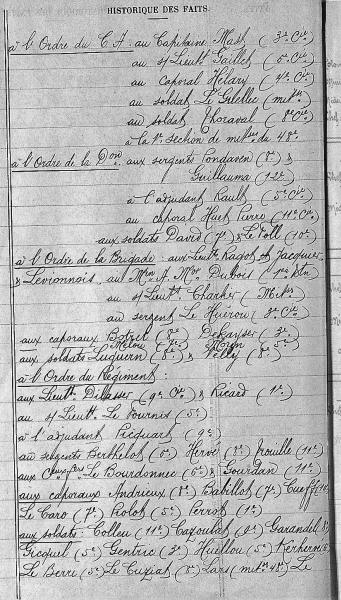 HISTORIQUE DES FAITS.
à l'Ordre du C.A. au Capitaine Mast (3e Cie)
au s/ Lieutt Gaillet (5e Cie)
au caporal Hélary (4e Cie)
au soldat Le Gellec (mitses)
au soldat Thoraval (8e Cie)
à la 1re section de mitses du 48e
à l'Ordre de la Don aux sergents Pondaven (1e) &
Guillaume (12e)
à l'adjudant Rault (5e Cie)
au caporal Huet Pierre (11e Cie)
aux soldats David (7e) & Le Voll (10e)
à l'Ordre de la Brigade : aux Lieutts Ragot & Jacquier
& Levionnois, au Min A. Mor Dubois (1er Bln)
au s/ Lieutt Charlier (Mitses)
au sergent Le Huérou (3e Cie)
aux caporaux Botrel (8e) (3e)
Melou (7e) Morin (5e)
aux soldats Luguern (8e) & Velly (8e)
à l'Ordre du Régiment :
aux Lieutts (9e Cie) & Ricard (1e)
au s/ Lieutt Le Fournis (5e)
à l'adjudant Picquart (9e)
aux sergents Berthelot (5e) Hervé (8e) (11e)
aux Le Bourdonnec (6e) & Gourdan (11e)
aux caporaux Andrieux (8e) Babillot (7e) Cueff
Le Caro (7e) Piolot (5e) Perrot (1e)
aux soldats : Colleu (11e) Cazoulat (9e) Garandel
Gicquel (5e) Gentric (3e) Huellou (5e) Kerhern
Le Berre (5e) Le Cuziat (5e) Lars (mitses 48e) Le